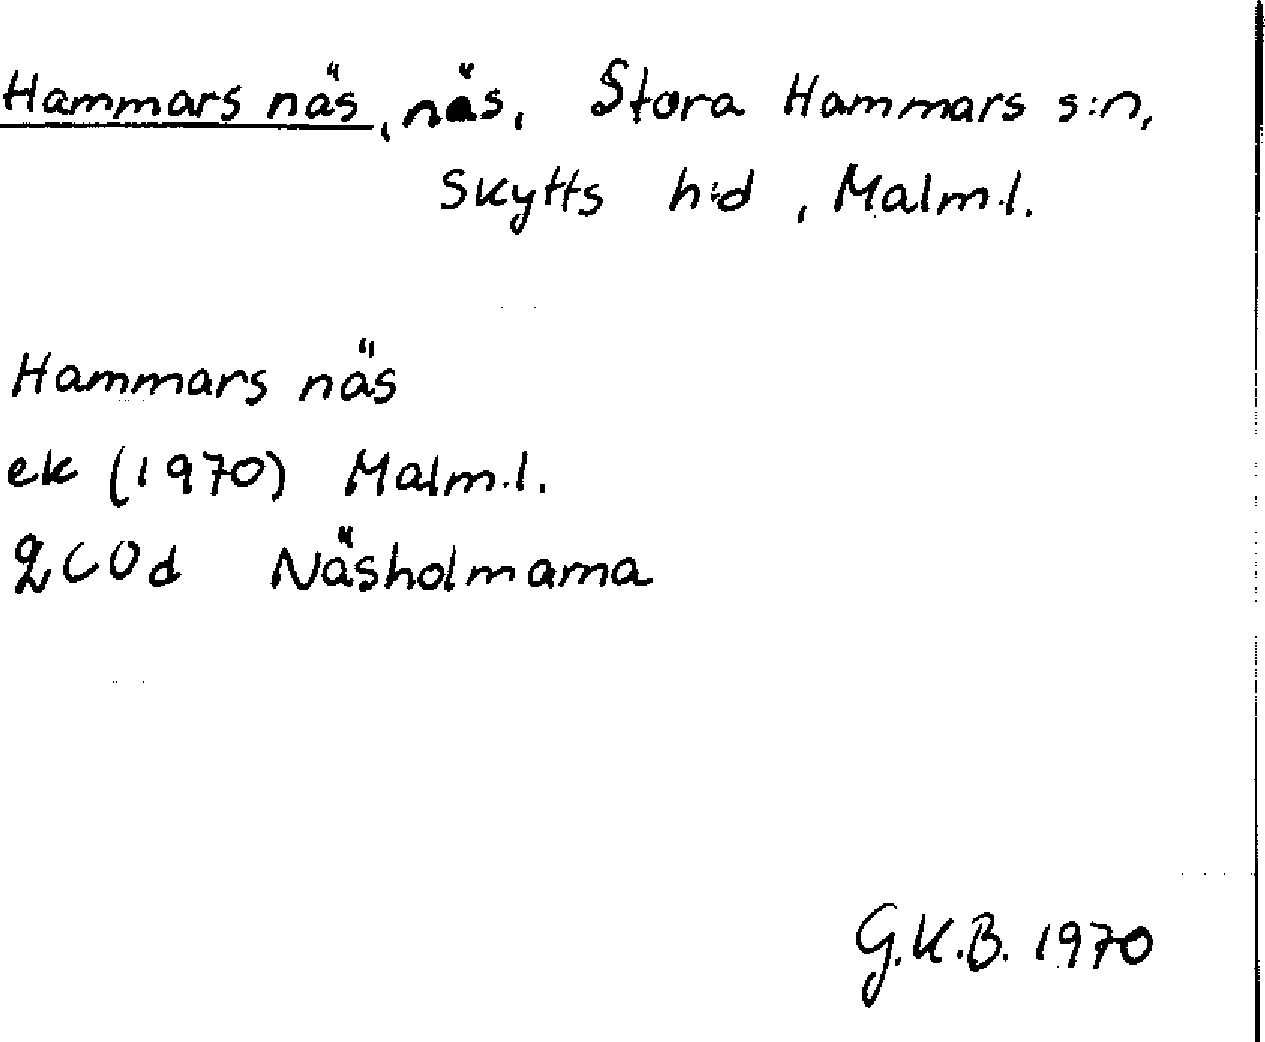 Hammars näs, näs, Stora Hammars s:n,
Skytts h:d, Malm.l.
Hammars näs
ek (1970) Malm.l.
2C0d Näsholmarna
G.K.B. 1970